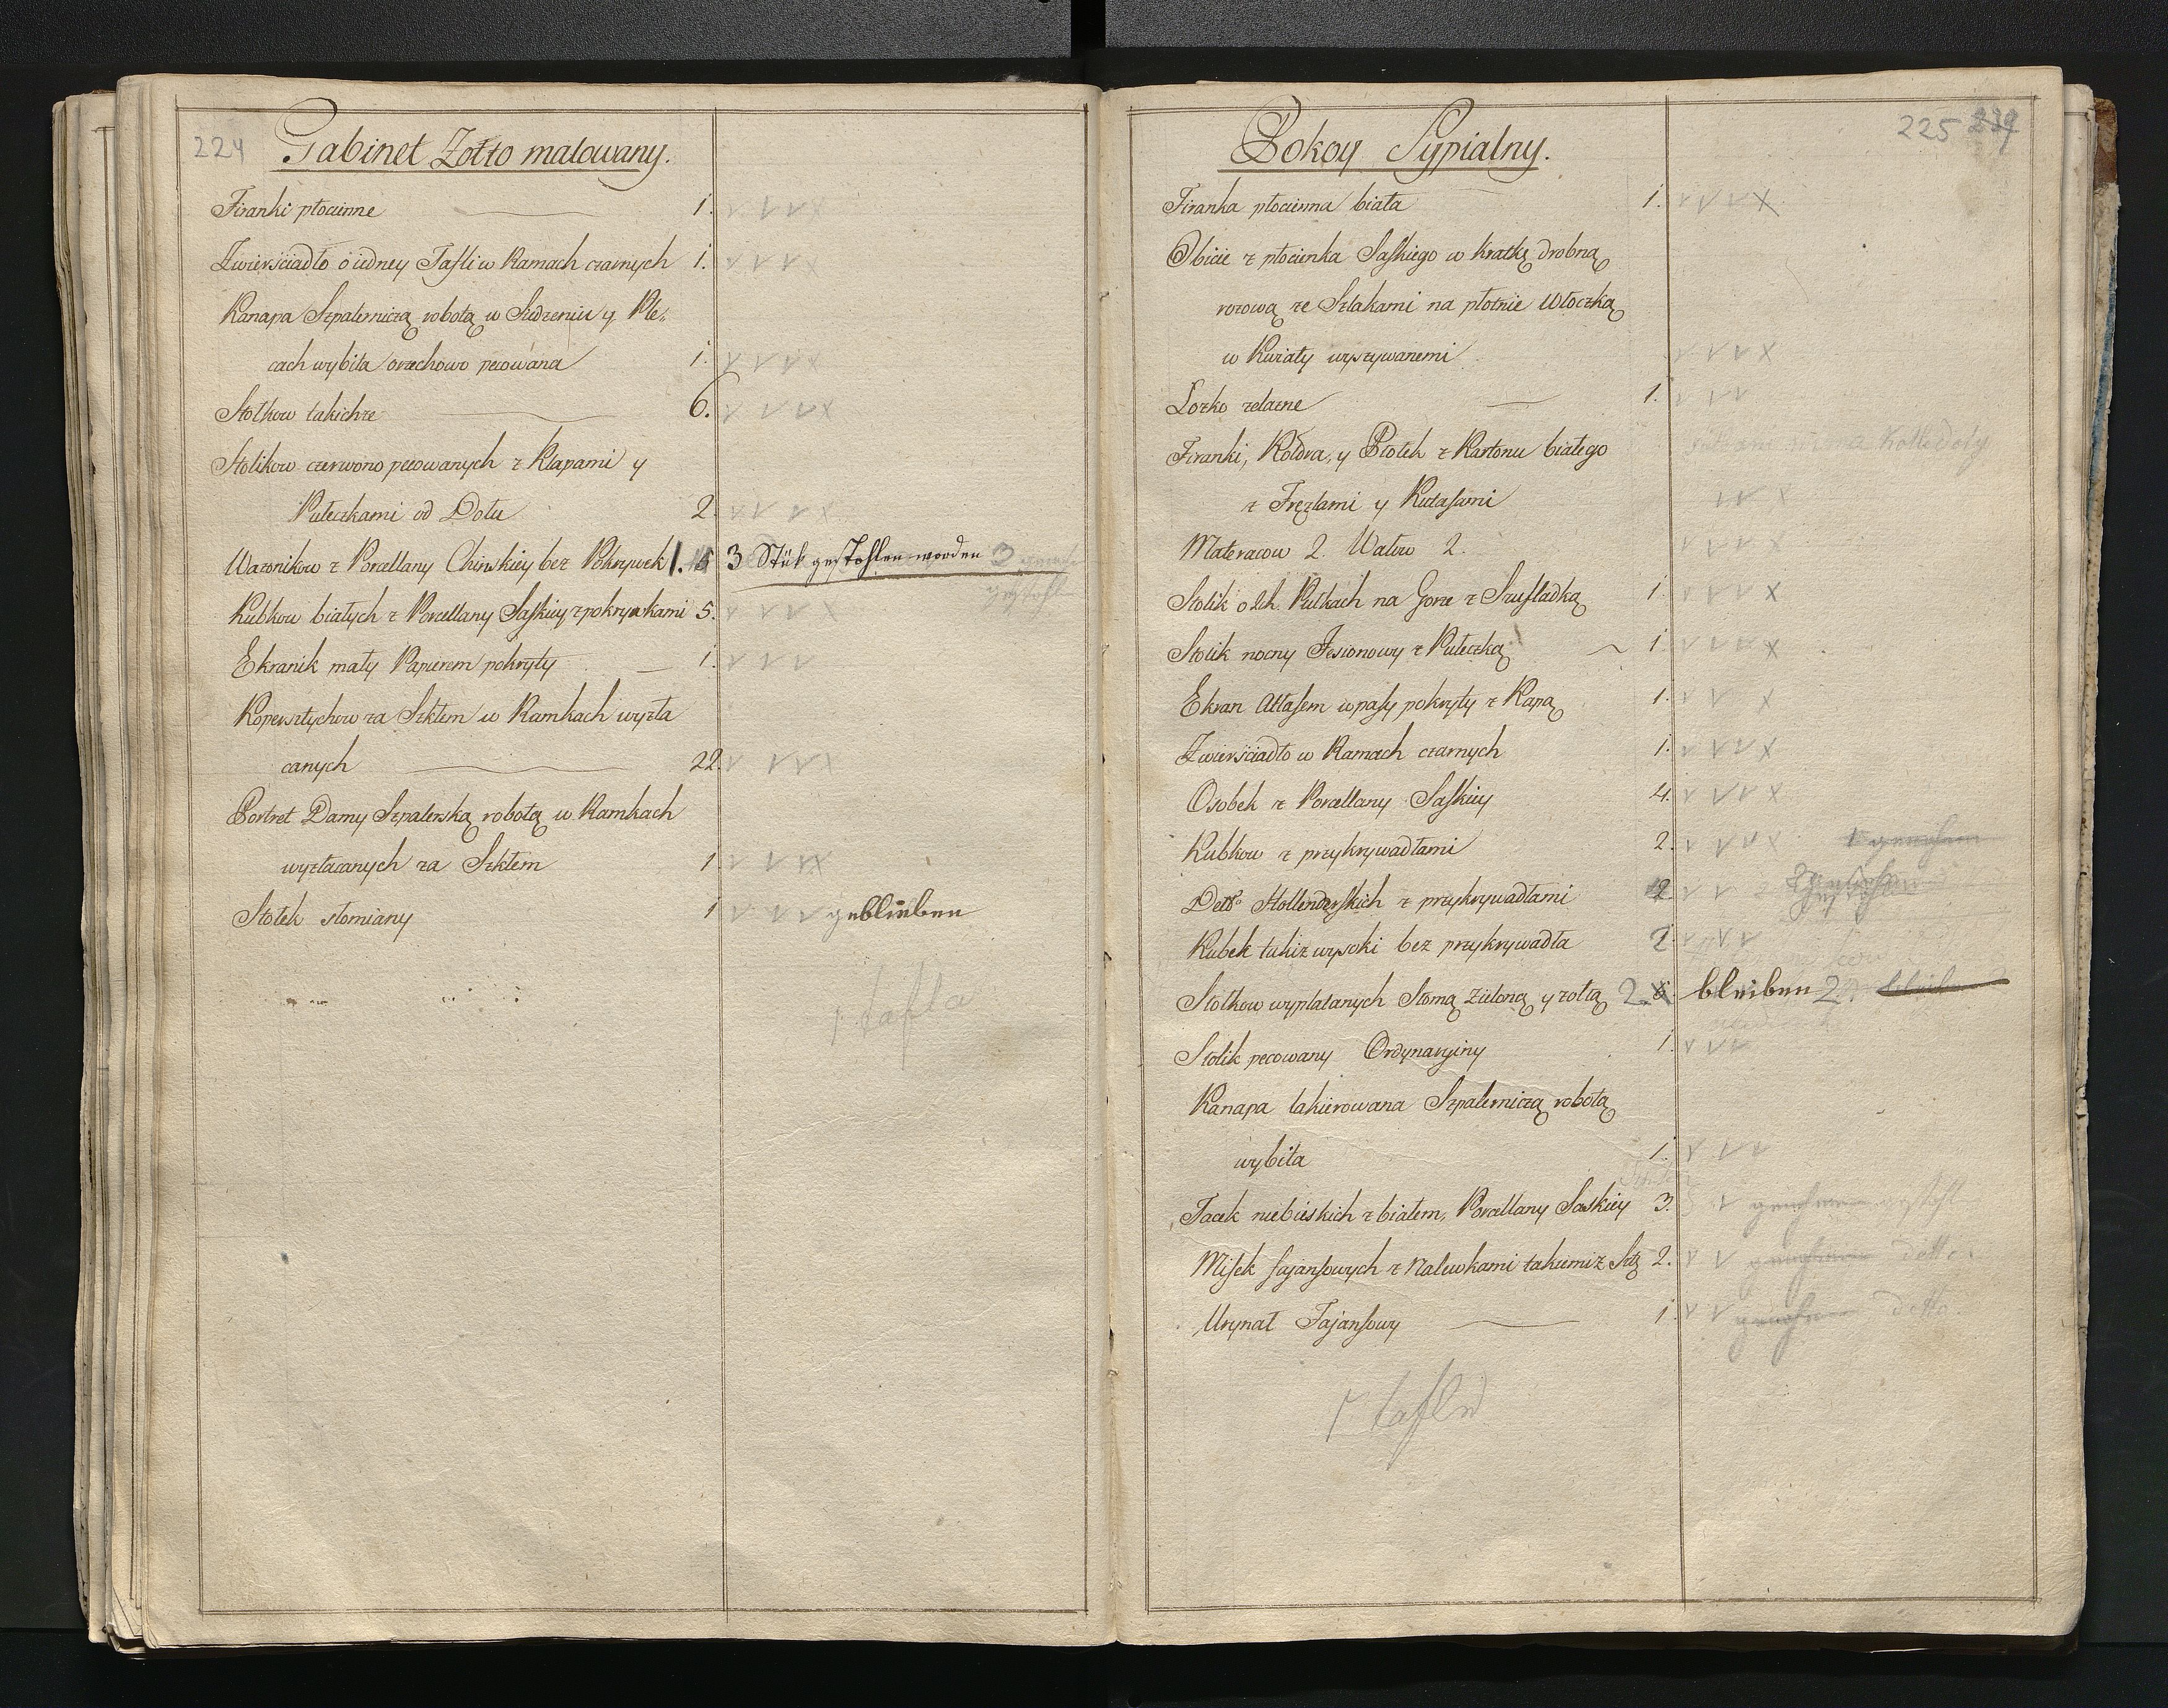 224
Gabinet Zołto malowany.
Firanki płocienne 1.
Zwierściadło o iedney Tafli w Ramach czarnych 1.
Kanapa Szpalerniczą robotą w Siedzeniu y Ple-
cach wybita orzechowo pecowana 1.
Stołkow takichze 6.
Stolikow czerwono pecowanych z Klapami y
Pułeczkami od Dołu 2.
Wazonikow z Porcellany Chinskiey bez Pokrywek 1. 3 Stük gestohlen worden 3
gestohl
Kubkow białych z Porcellany Saskiey z pokrywkami 5.
Ekranik mały Papierem pokryty 1.
Kopersztychow za Szkłem w Ramkach wyzła
canych 22.
Portret Damy Szpalerską robotą w Ramkach
wyzłacanych za Szkłem 1
Stołek słomiany 1 geblieben
1 tafla
225
Pokoy Sypialny.
Firanka płocienna biała 1.
Obicie z płocienka Saskiego w kratkę drobną
rozową ze Szlakami na płotnie Włoczką
w Kwiaty wyszywanemi
Łozko zelazne 1.
Firanki, Kołdra, y Płotek z Kartonu białego
z Fręzlami y Kutasami
Materacow 2. Wałow 2.
Stolik o 2ch. Pułkach na Gorze z Szufladką 1
Stolik nocny Jesionowy z Pułeczką 1
Ekran Atłasem w pasy pokryty z Kapą 1.
Zwierściadło w Ramach czarnych 1.
Osobek z Porcellany Saskiey 4.
Kubkow z przykrywadłami 2.
Detto Hollenderskich z przykrywadłami 2
Kubek takiz wysoki bez przykrywadła 2
Stołkow wyplatanych Słomą zieloną y zołtą 2. bleiben 2
Stolik pecowany Ordynaryiny 1
Kanapa lakierowana Szpalerniczą robotą
wybita 1.
Tacek niebieskich z białem, Porcellany Saskiey 3. gestohl
Misek fajansowych z Nalewkami takiemiz Szt 2. detto.
Urynał Fajansowy 1 detto.
1 tafla